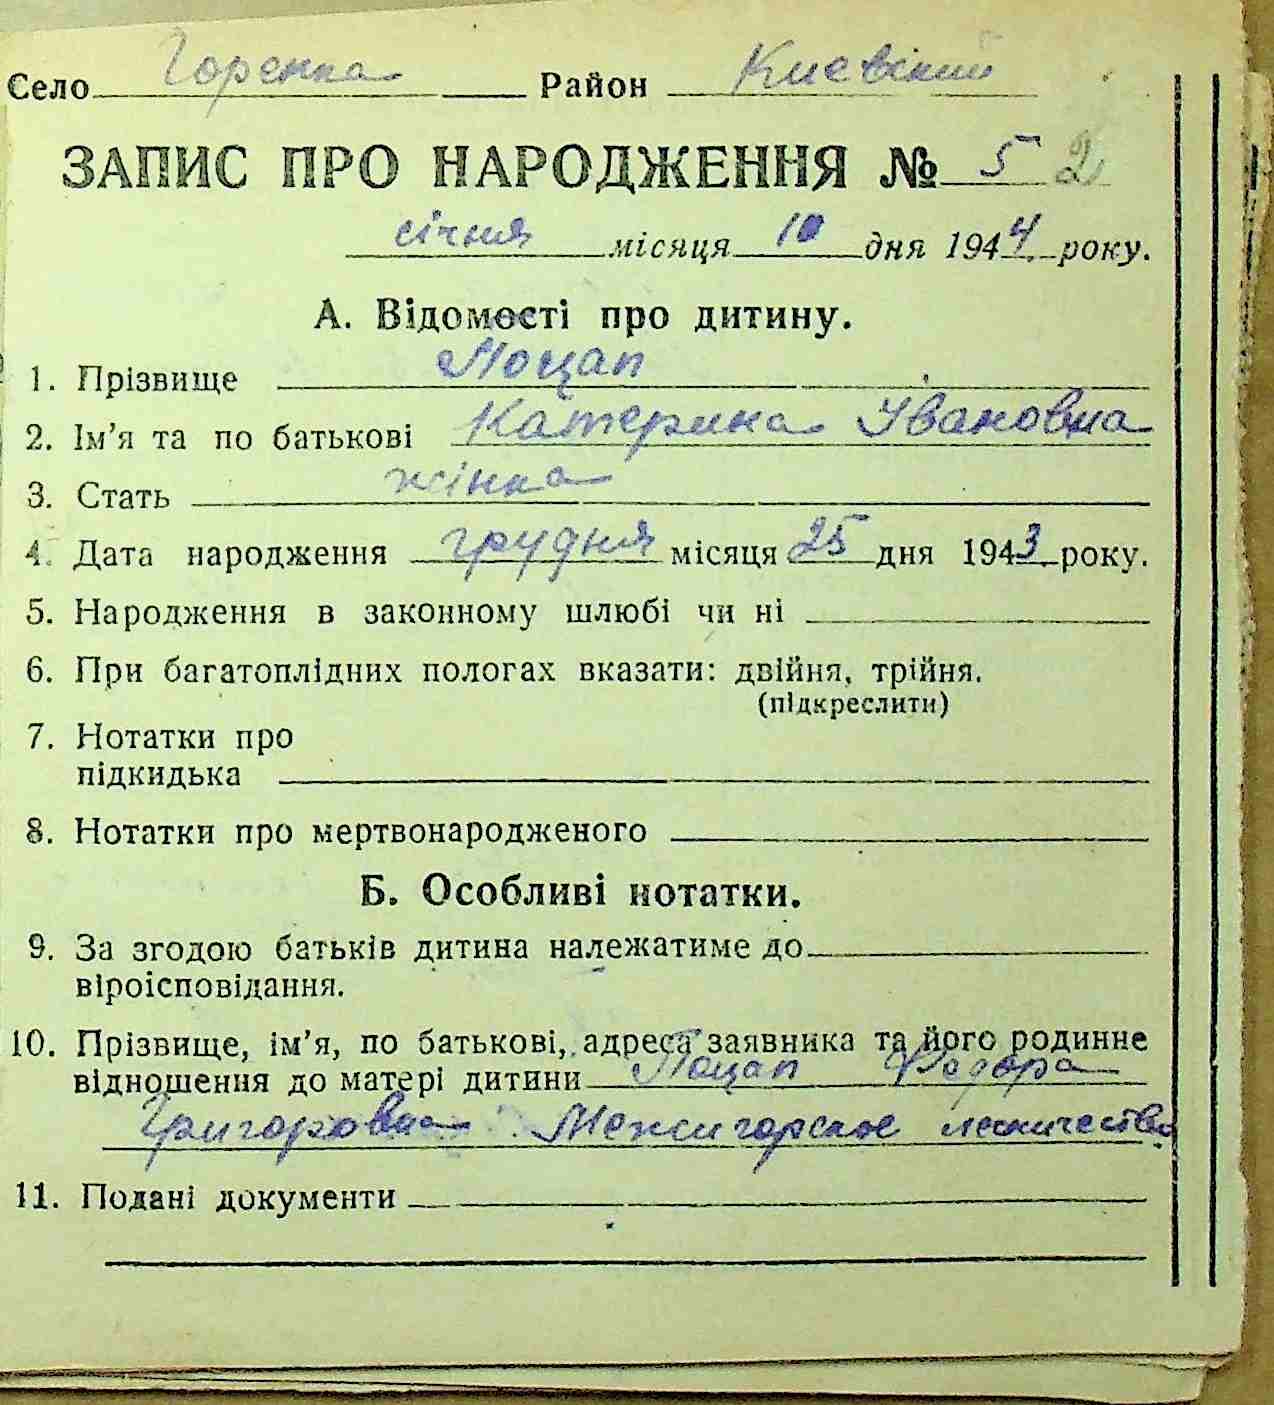 Село Горенка Район Киевский
ЗАПИС ПРО НАРОДЖЕННЯ № 5 2
січня місяця 10 дня 1944 року.
А. Відомості про дитину.
1. Прізвище Поцап
2. Ім'я та по батькові Катерина Івановна
3. Стать жінка
4. Дата народження грудня місяця 25 дня 1943 року.
5. Народження в законному шлюбі чи ні
6. При багатоплідних пологах вказати: двійня, трійня.
(підкреслити)
7. Нотатки про
підкидька
8. Нотатки про мертвонародженого
Б. Особливі нотатки.
9. За згодою батьків дитина належатиме до
віроісповідання.
10. Прізвище, ім'я, по батькові, адреса заявника та його родинне
відношення до матері дитини Поцап Федора
Григоровна Межигорское лесничество
11. Подані документи